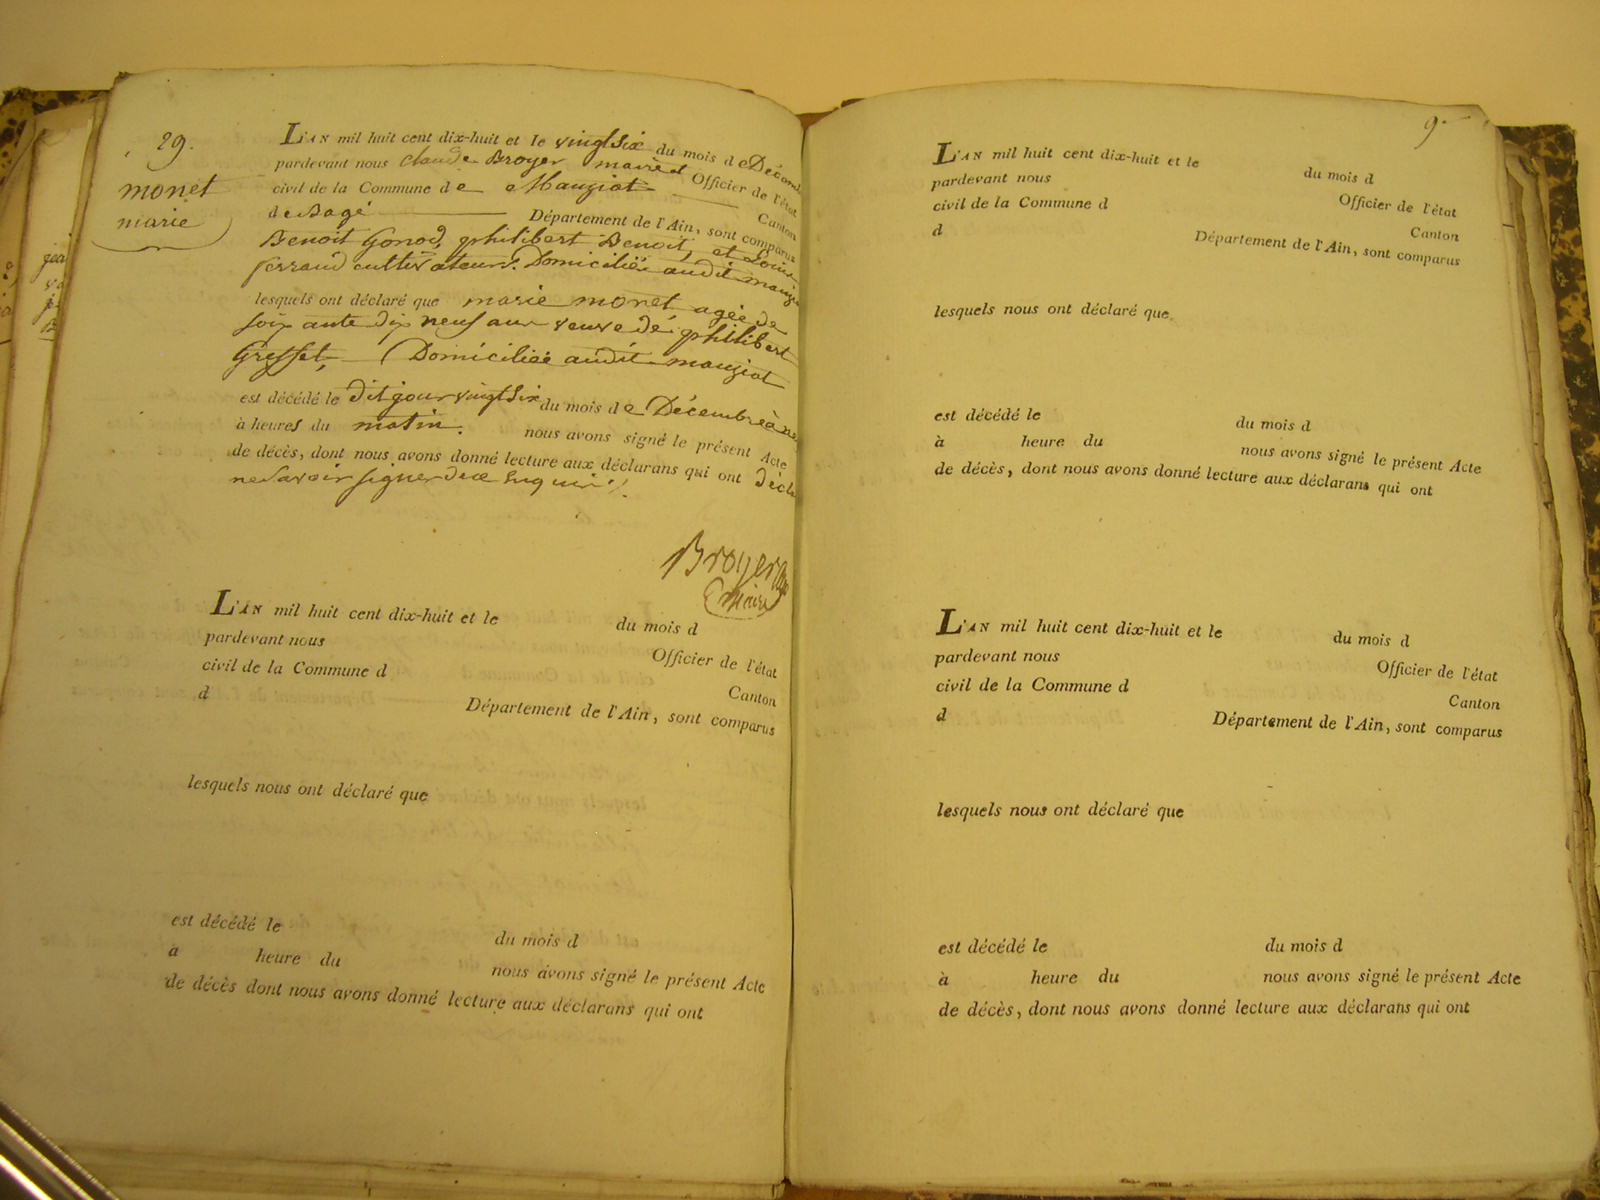 29.
monet
marie
L'AN mil huit cent dix-huit et le vingtsix du mois de Décem
pardevant nous Claude Broyer maire et Officier de l'état
civil de la Commune de Manziat Canton
de Bagé Département de l'Ain, sont comparus
Benoit Gonod, philibert Benoit, et Louis
ferrand cultivateurs Domiciliés audit manzia
lesquels ont déclaré que marie monet agée de
soixante dix neuf ans veuve de philibert
Greffet, Domiciliée audit manziat
est décédé le dit jour vingtsix du mois de Décembre à
à heures du matin. nous avons signé le présent Acte
de décès, dont nous avons donné lecture aux déclarans qui ont décla
ne savoir signer de ce Enquis
Broyer
Maire
L'AN mil huit cent dix-huit et le du mois d
pardevant nous Officier de l'état
civil de la Commune d Canton
d Département de l'Ain, sont comparus
lesquels nous ont déclaré que
est décédé le du mois d
à heure du nous avons signé le présent Acte
de décès dont nous avons donné lecture aux déclarans qui ont
9.
L'AN mil huit cent dix-huit et le du mois d
pardevant nous Officier de l'état
civil de la Commune d Canton
d Département de l'Ain, sont comparus
lesquels nous ont déclaré que
est décédé le du mois d
à heure du nous avons signé le présent Acte
de décès, dont nous avons donné lecture aux déclarans qui ont
L'AN mil huit cent dix-huit et le du mois d
pardevant nous Officier de l'état
civil de la Commune d Canton
d Département de l'Ain, sont comparus
lesquels nous ont déclaré que
est décédé le du mois d
à heure du nous avons signé le présent Acte
de décès, dont nous avons donné lecture aux déclarans qui ont